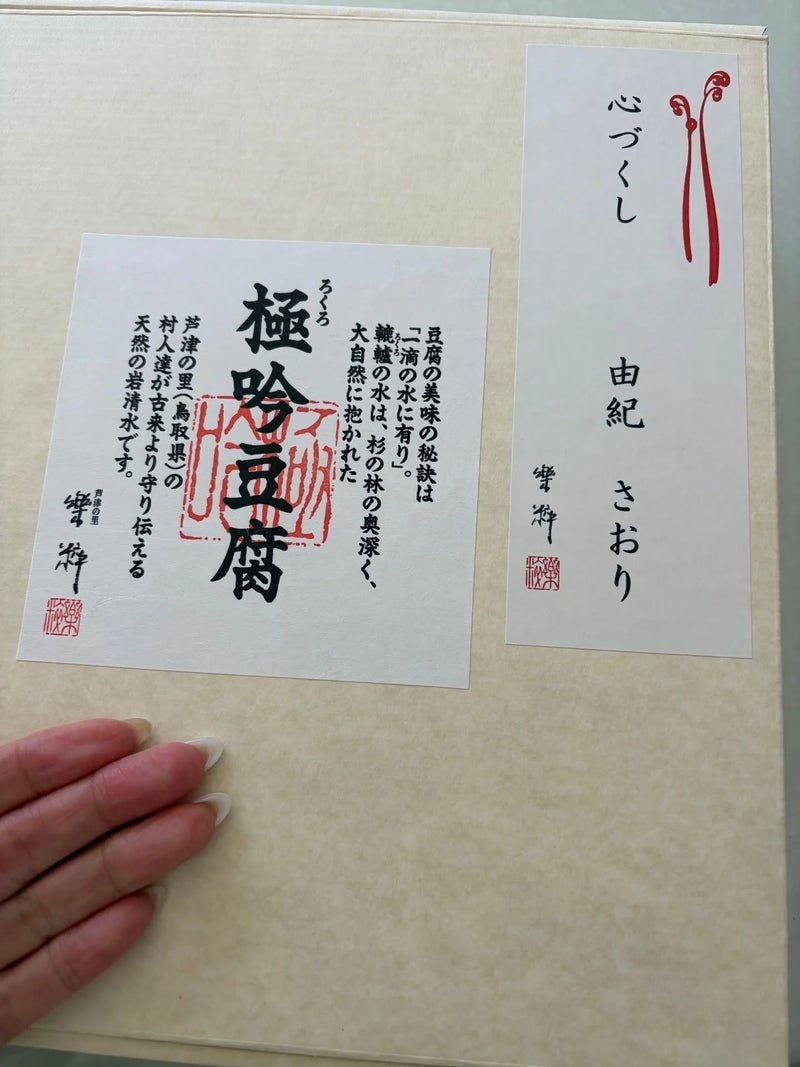 心づくし
由紀 さおり
樂粹
豆腐の美味の秘訣は
「一滴の水に有り」。
ろくろ
轆轤の水は、杉の林の奥深く、
大自然に抱かれた
ろくろ
極吟豆腐
芦津の里(鳥取県)の
村人達が古来より守り伝える
天然の岩清水です。
芦津の里
樂粹